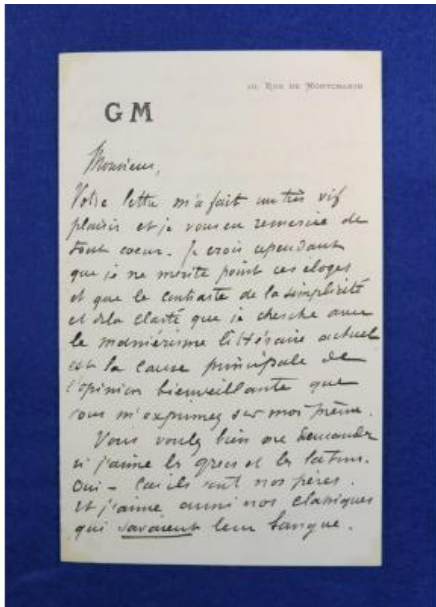 10, RUE DE MONTCHANIN
GM
Monsieur,
Votre lettre m'a fait un très vif
plaisir et je vous en remercie de
tout coeur. Je crois cependant
que je ne mérite point ces éloges
et que le contraste de la simplicité
et de la clarté que je cherche avec
le maniérisme littéraire actuel
est la cause principale de
l'opinion bienveillante que
vous m'exprimez sur moi même.
Vous voulez bien me demander
si j'aime les grecs et les latins.
Oui - Car ils sont nos pères.
et j'aime aussi nos classiques
qui savaient leur langue.